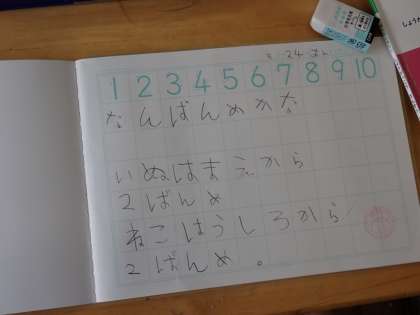 1 2 3 4 5 6 7 8 9 10
なんばんめかな
いぬはまえから
2ばんめ
ねこはうしろから
2ばんめ。